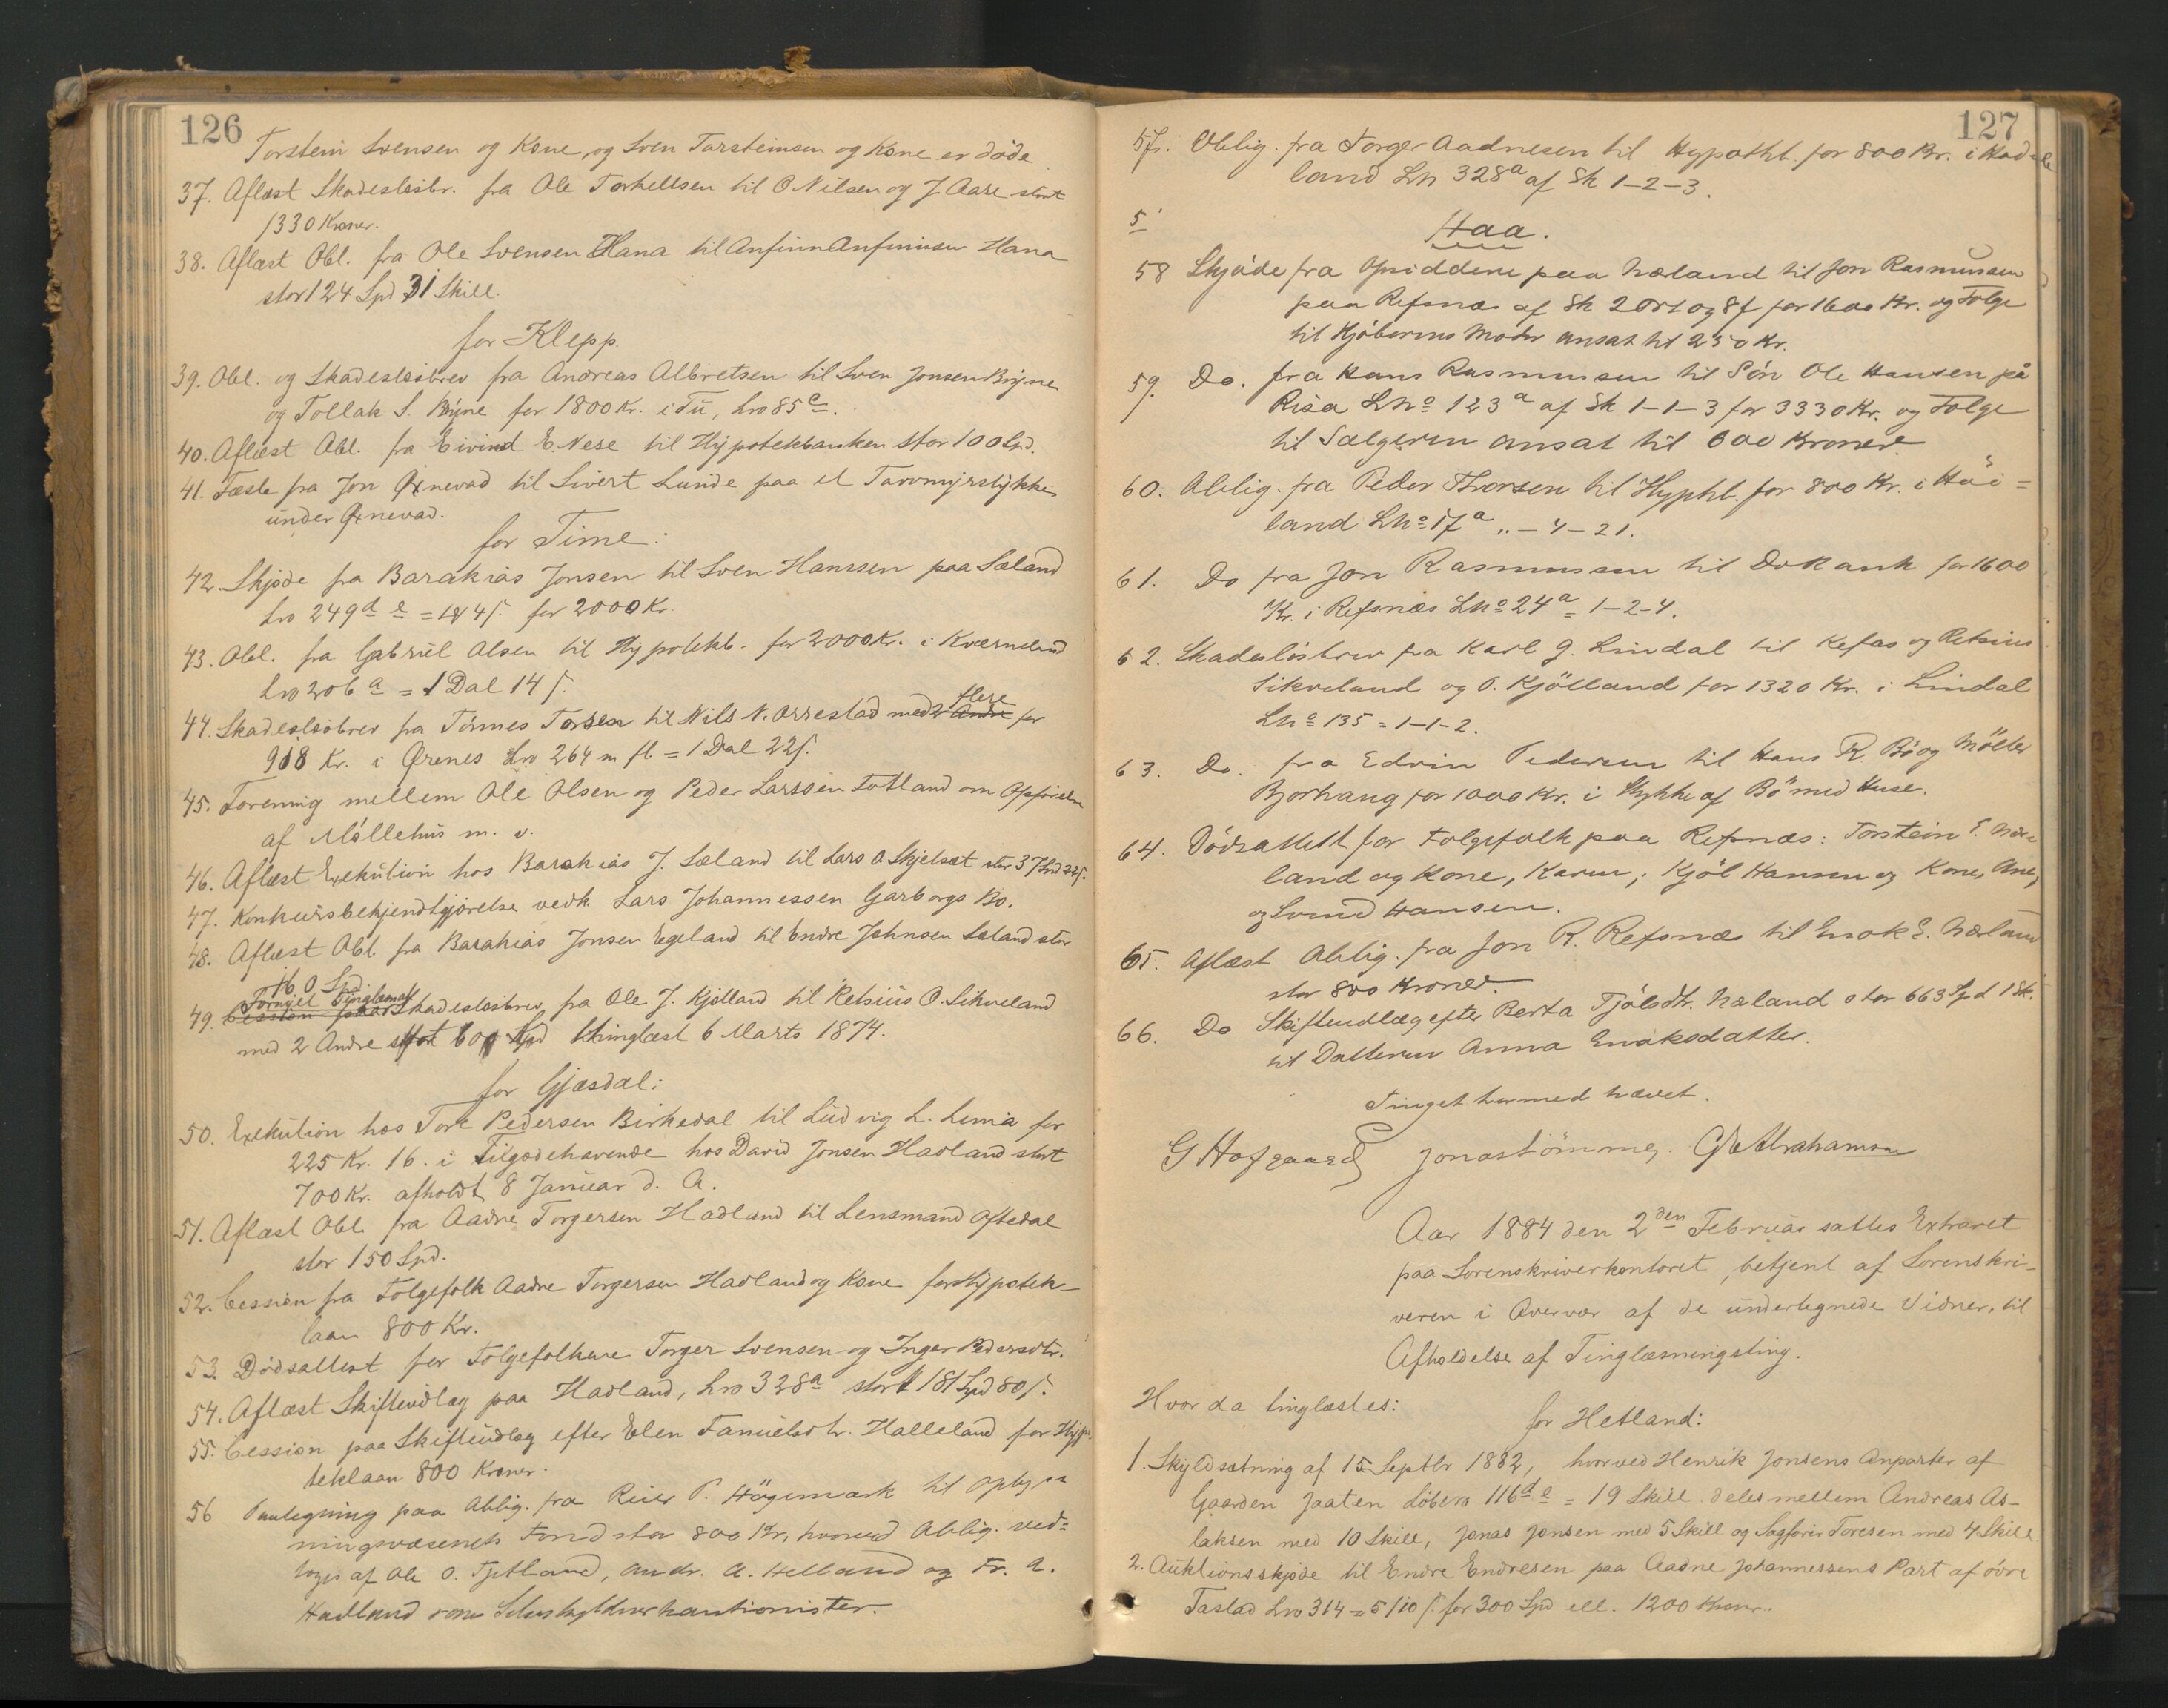 126
Torstein Svensen og Kone, og Sven Torsteinsen og Kone er døde
37. Aflæst Skadesløsbr. fra Ole Torkellsen til O Nilsen og J. Aare stort
1330 Kroner.
38. Aflæst Obl. fra Ole Svensen Hana til Anfinn Anfinnsen Hana
stor 124 Spd 31 Skill.
for Klepp.
39. Obl. og Skadesløsbrev fra Andreas Albretsen til Sven Jonsen Bryne
og Tollak S. Bryne for 1800 Kr. i Tu, Lno 85 c.
40. Aflæst Obl. fra Eivind E. Nese til Hypotekbanken stor 100 Spd.
41. Fæste fra Jon Øxnevad til Sivert Lunde paa et Torvmyrstykke
under Øxnevad.
for Time:
42. Skjøde fra Barakias Jonsen til Sven Hanssen paa Sæland
Lno 249 d e = for 2000 Kr.
43. Obl. fra Gabriel Olsen til Hypotekb. for 2000 Kr. i Kværneland
Lno 206 a = 1 Dal 14 s.
44. Skadesløsbrev fra Tønnes Torsen til Nils N. Orrestad med 2 Andre Flere for
918 Kr. i Ørenes Lno 264 m fl. = 1 Dal 22 s.
45. Forening mellem Ole Olsen og Peder Larssen Fotland om Opførelse
af Møllehus m. v.
46. Aflæst Exekution hos Barakias J. Sæland til Lars O Skjelsæt stor 37 Spd 22 s.
47. Konkursbekjendtgjørelse vedk. Lars Johannessen Garborgs Bo.
48. Aflæst Obl. fra Barakias Jonsen Egeland til Endre Johnsen Sæland stor
160 Spd
49. Cession paa Fornyet Tinglæsning Skadesløsbrev fra Ole J. Kjølland til Retsius O. Sikveland
med 2 Andre stort 600 Spd thinglæst 6 Marts 1874.
for Gjæsdal:
50. Exekution hos Tore Pedersen Birkedal til Ludvig L. Lima for
225 Kr. 16. i Tilgodehavende hos David Jonsen Hadland stort
700 Kr. afholdt 8 Januar d. A.
51. Aflæst Obl. fra Aadne Torgersen Hadland til Lensmand Oftedal
stor 150 Spd.
52. Cession fra Folgefolk Aadne Torgersen Hadland og Kone for Hypotek-
laan 800 Kr.
53. Dødsattest for Folgefolkene Torger Svensen og Inger Pedersdtr.
54. Aflæst Skifteudlæg paa Hadland, Lno 328 a stort 181 Spd 80 s.
55. Cession paa Skifteudlæg efter Elen Samuelsdtr. Halleland for Hypo-
teklaan 800 Kroner.
56 Paategning paa Oblig. fra Reier P. Høgemark til Oplys
ningsvæsenets Fond stor 800 Kr., hvorved Oblig. ved=
tages af Ole O. Tjetland, Andr. A. Helland og Tr. A.
Hadland som Selvskyldnerkautionister.
127
57. Oblig. fra Torger Aadnesen til Hypothb. for 800 Kr. i Had
land Lh 328 a af Sk 1-2-3.
5
Haa.
58 Skjøde fra Opsidderne paa Næland til Jon Rasmussen
paa Refsnæs af Sk 2 Ort og 8 s for 1600 Kr. og Folge
til Kjøberens Moder ansat til 250 Kr.
59. Do. fra Hans Rasmussen til Søn Ole Hansen på
Risa Lno 123 a af Sk 1-1-3 for 3330 Kr. og Folge
til Sælgeren ansat til 600 Kroner.
60. Oblig. fra Peder Thorsen til Hyphb. for 800 Kr. i Høi=
land Lno 17 a „-4-21.
61. Do fra Jon Rasmussen til Do Kank for 1600
Kr. i Refsnæs Lno 24 a = 1-2-4.
62. Skadesløsbrev fra Karl G. Lindal til Kefas og Retsius
Sikveland og O. Kjölland for 1320 Kr. i Lindal
Lno 135 = 1-1-2.
63. Do. fra Edvin Pedersen til Hans R Bö og Möller
Bjorhaug for 1000 Kr. i Stykke af Bö med Huse.
64. Dödsattest for Folgefolk paa Refsnæs: Torstein E. Nær
land og Kone, Karen; Kjöl Hansen og Kone, Ane,
og Svend Hansen.
65. Aflæst Oblig. fra Jon R. Refsnæs til Enok E. Nærland
stor 800 Kroner.
66. Do Skifteudlæg efter Berta Tjölsdtr. Næland stor 663 Spd 1 Sk.
til Datteren Anna Enoksdatter.
Tinget hermed hævet.
G Hofgaard Jonas Lömming. G Abrahamsen
Aar 1884 den 2den Februar sattes Extraret
paa Sorenskriverkontoret, betjent af Sorenskri-
veren i Overvær af de undertegnede Vidner, til
Afholdelse af Tinglæsningsting.
Hvor da tinglæstes:
for Hetland:
1. Skyldsætning af 15 Septbr 1882, hvorved Henrik Jonsens Anparter af
Gaarden Jaaten Løbeno 116 d e = 19 Skill. deles mellem Andreas As-
laksen med 10 Skill, Jonas Jonsen med 5 Skill og Sagfører Toresen med 4 Skill
2. Auktionsskjøde til Endre Endresen paa Aadne Johannessens Part af øvre
Tastad Lno 314 = 5/10 s. for 300 Spd ell. 1200 Kroner.